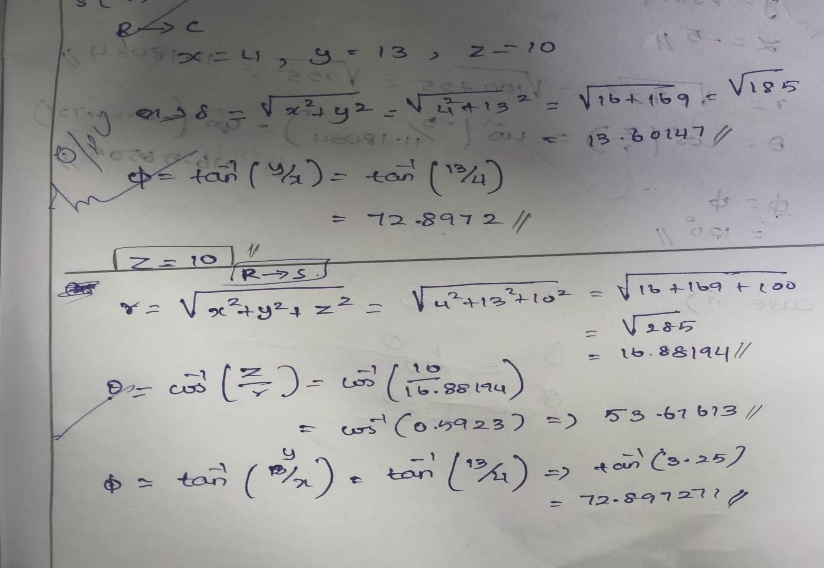 R → C
x = 4 , y = 13 , z = 10
δ = √x²+y² = √4²+13² = √16+169 = √185
= 13.60147 //
O/p
ϕ = tan⁻¹ (y/x) = tan⁻¹ (13/4)
= 72.8972 //
Z = 10 //
R → S.
r = √x²+y²+z² = √4²+13²+10² = √16+169+100
= √285
= 16.88194 //
θ = cos⁻¹ (z/r) = cos⁻¹ (10/16.88194)
= cos⁻¹ (0.5923) => 53.67673 //
ϕ = tan⁻¹ (y/x) = tan⁻¹ (13/4) => tan⁻¹ (3.25)
= 72.897271 //